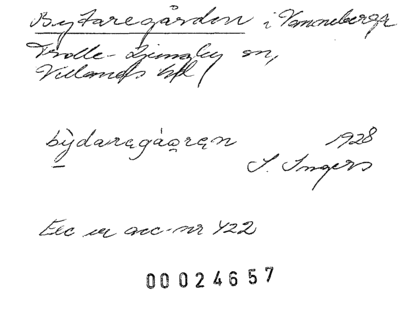 Bytaregården i Vanneberga
Trolle-Ljungby sn,
Villands hd
bỳdaragáǫręn 1928
I. Ingers
Exc ur acc-nr 422
00024657